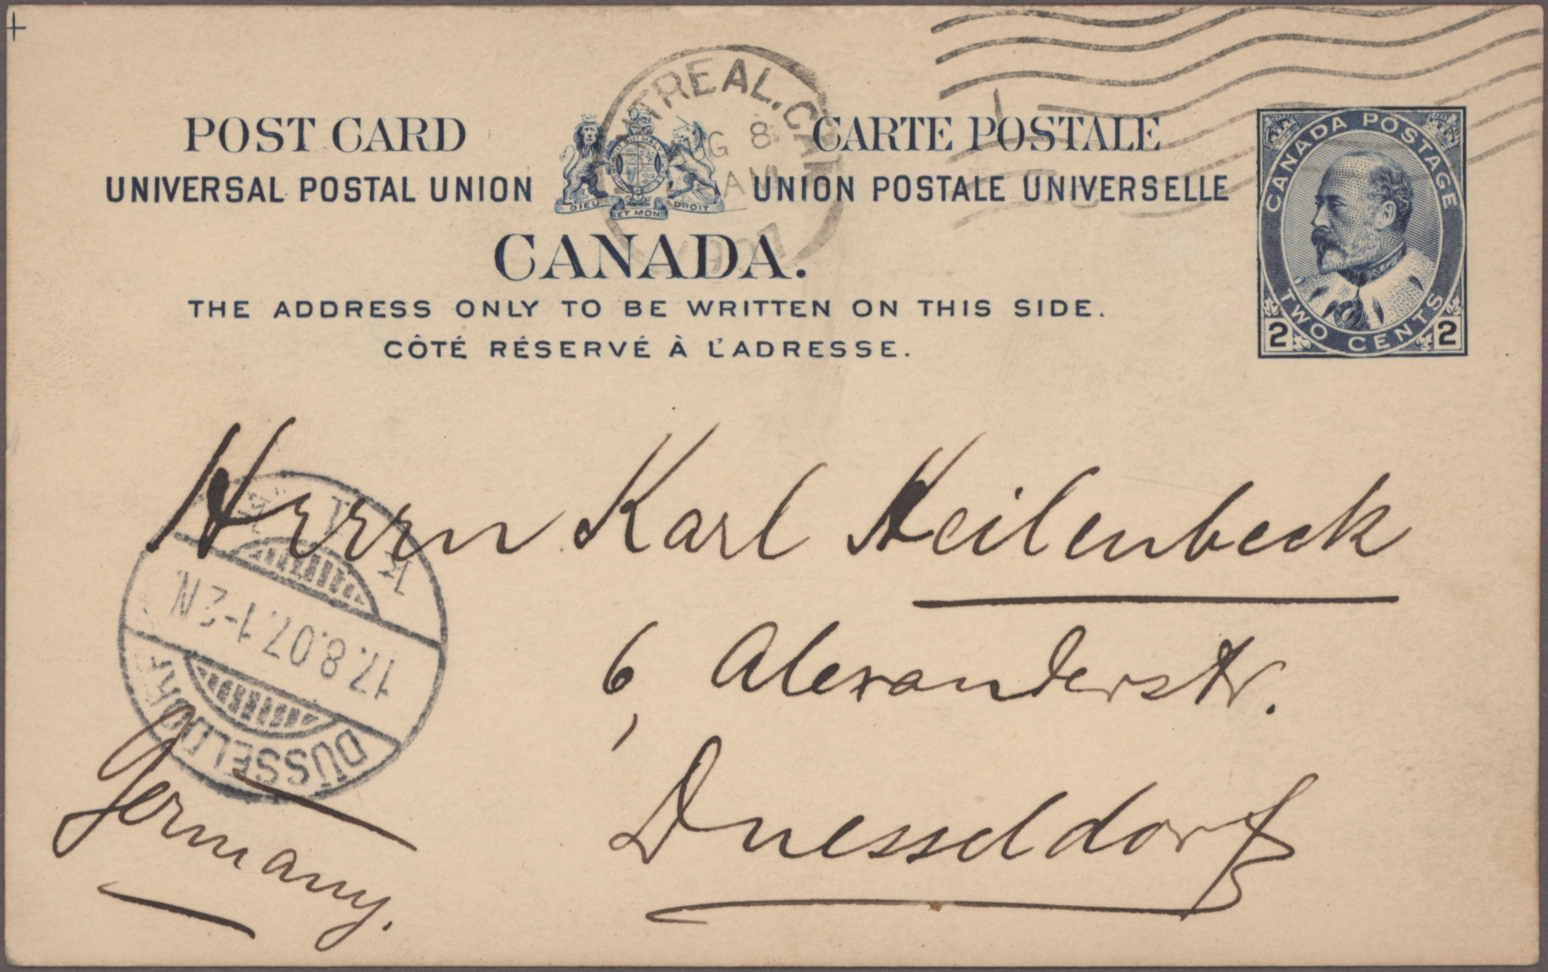 POST CARD
UNIVERSAL POSTAL UNION
DIEU ET MON DROIT
MONTREAL, CAN
8
AM
07
CARTE POSTALE
UNION POSTALE UNIVERSELLE
CANADA.
THE ADDRESS ONLY TO BE WRITTEN ON THIS SIDE.
CÔTÉ RÉSERVÉ À L'ADRESSE.
CANADA POSTAGE
TWO CENTS
2 2
Herrn Karl Heilenbeck
6, Alexanderstr.
Duesseldorf
Germany.
DÜSSELDORF
17.8.07.1-2N.